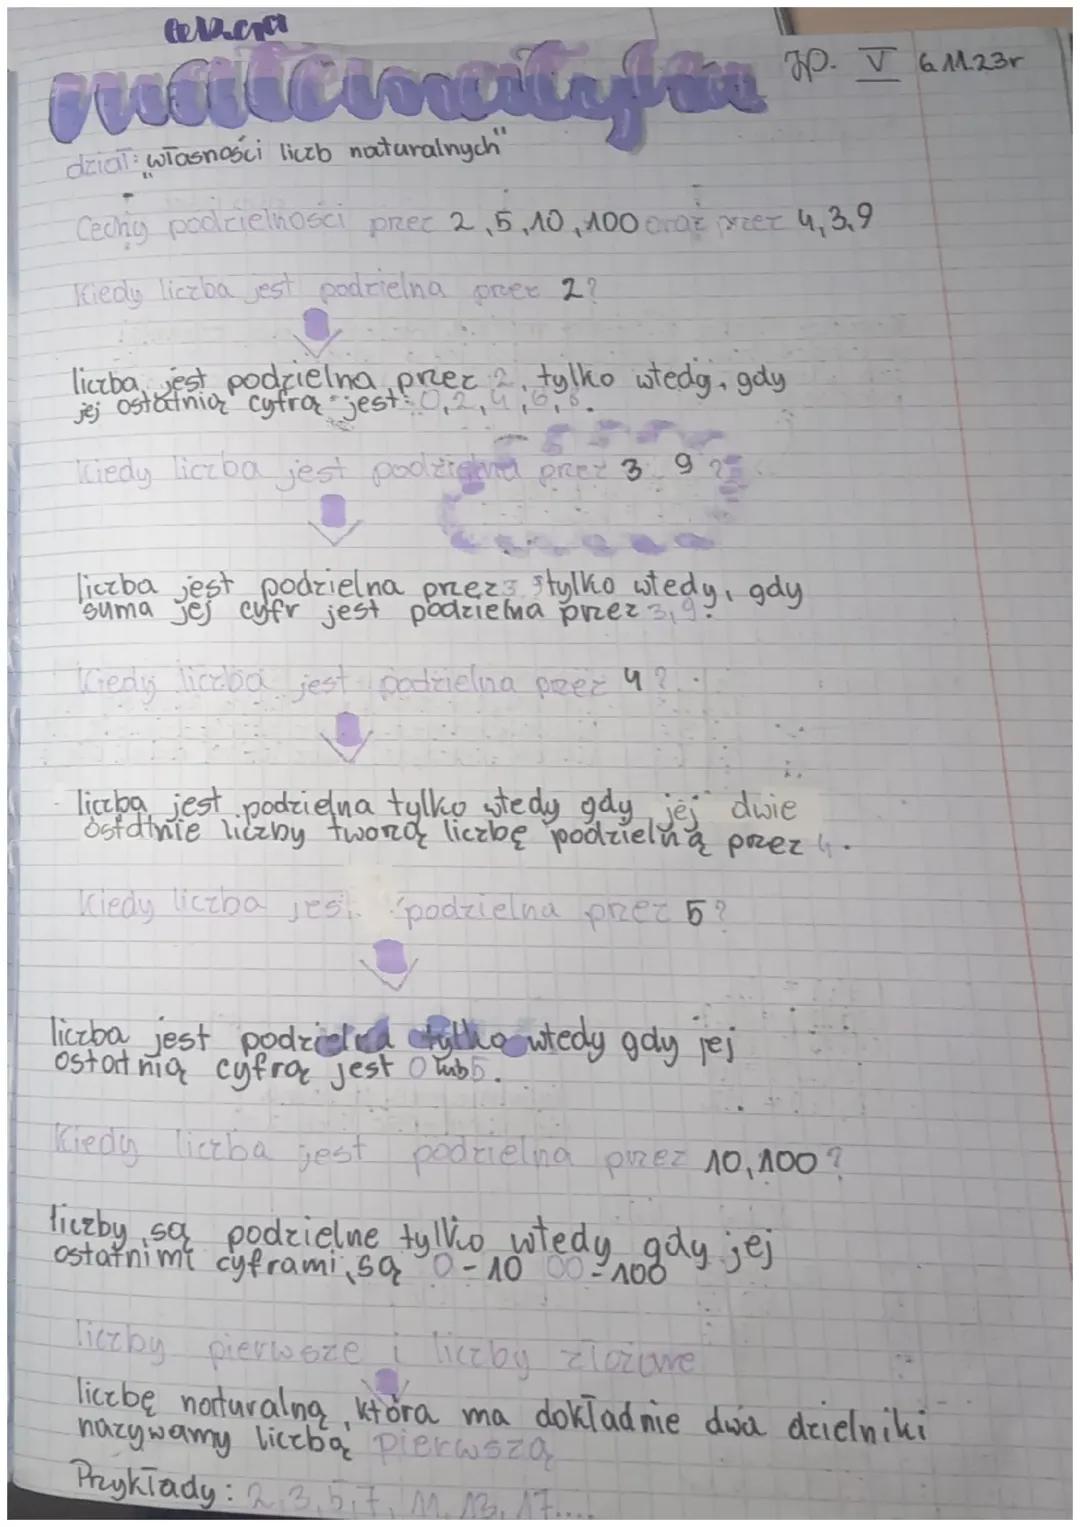 matematyka
Sp. V 6.11.23r
dział: "własności liczb naturalnych"
Cechy podzielności przez 2, 5, 10, 100 oraz przez 4, 3, 9
Kiedy liczba jest podzielna przez 2?
liczba jest podzielna przez 2, tylko wtedy, gdy
jej ostatnią cyfrą jest: 0, 2, 4, 6, 8.
Kiedy liczba jest podzielna przez 3 9?
liczba jest podzielna przez 3 9 tylko wtedy, gdy
suma jej cyfr jest podzielna przez 3, 9.
Kiedy liczba jest podzielna przez 4?
liczba jest podzielna tylko wtedy gdy jej dwie
ostatnie liczby tworzą liczbę podzielną przez 4.
Kiedy liczba jest podzielna przez 5?
liczba jest podzielna tylko wtedy gdy jej
ostatnią cyfrą jest 0 lub 5.
Kiedy liczba jest podzielna przez 10, 100?
liczby są podzielne tylko wtedy gdy jej
ostatnimi cyframi są 0-10 00-100
liczby pierwsze i liczby złożone
liczbę naturalną, która ma dokładnie dwa dzielniki
nazywamy liczbą pierwszą
Przykłady: 2, 3, 5, 7, 11, 13, 17....